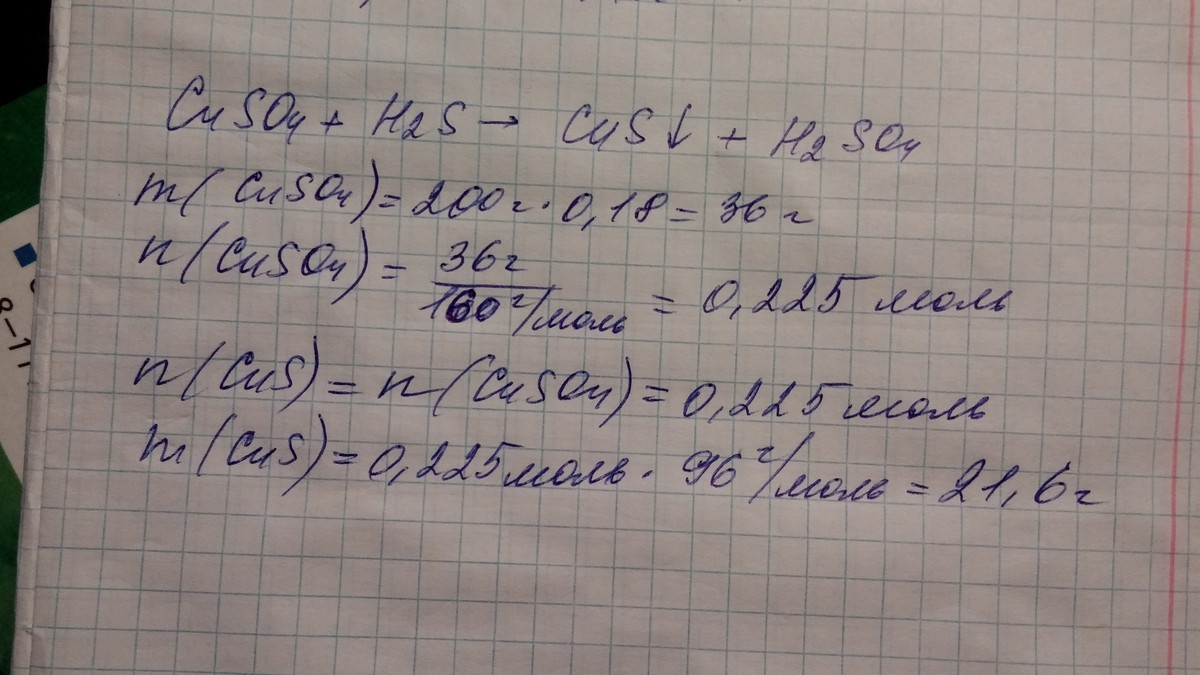 CuSO4 + H2S → CuS↓ + H2SO4
m(CuSO4) = 200г · 0,18 = 36 г
n(CuSO4) = 36г / 160 г/моль = 0,225 моль
n(CuS) = n(CuSO4) = 0,225 моль
m(CuS) = 0,225 моль · 96 г/моль = 21,6 г
8-11